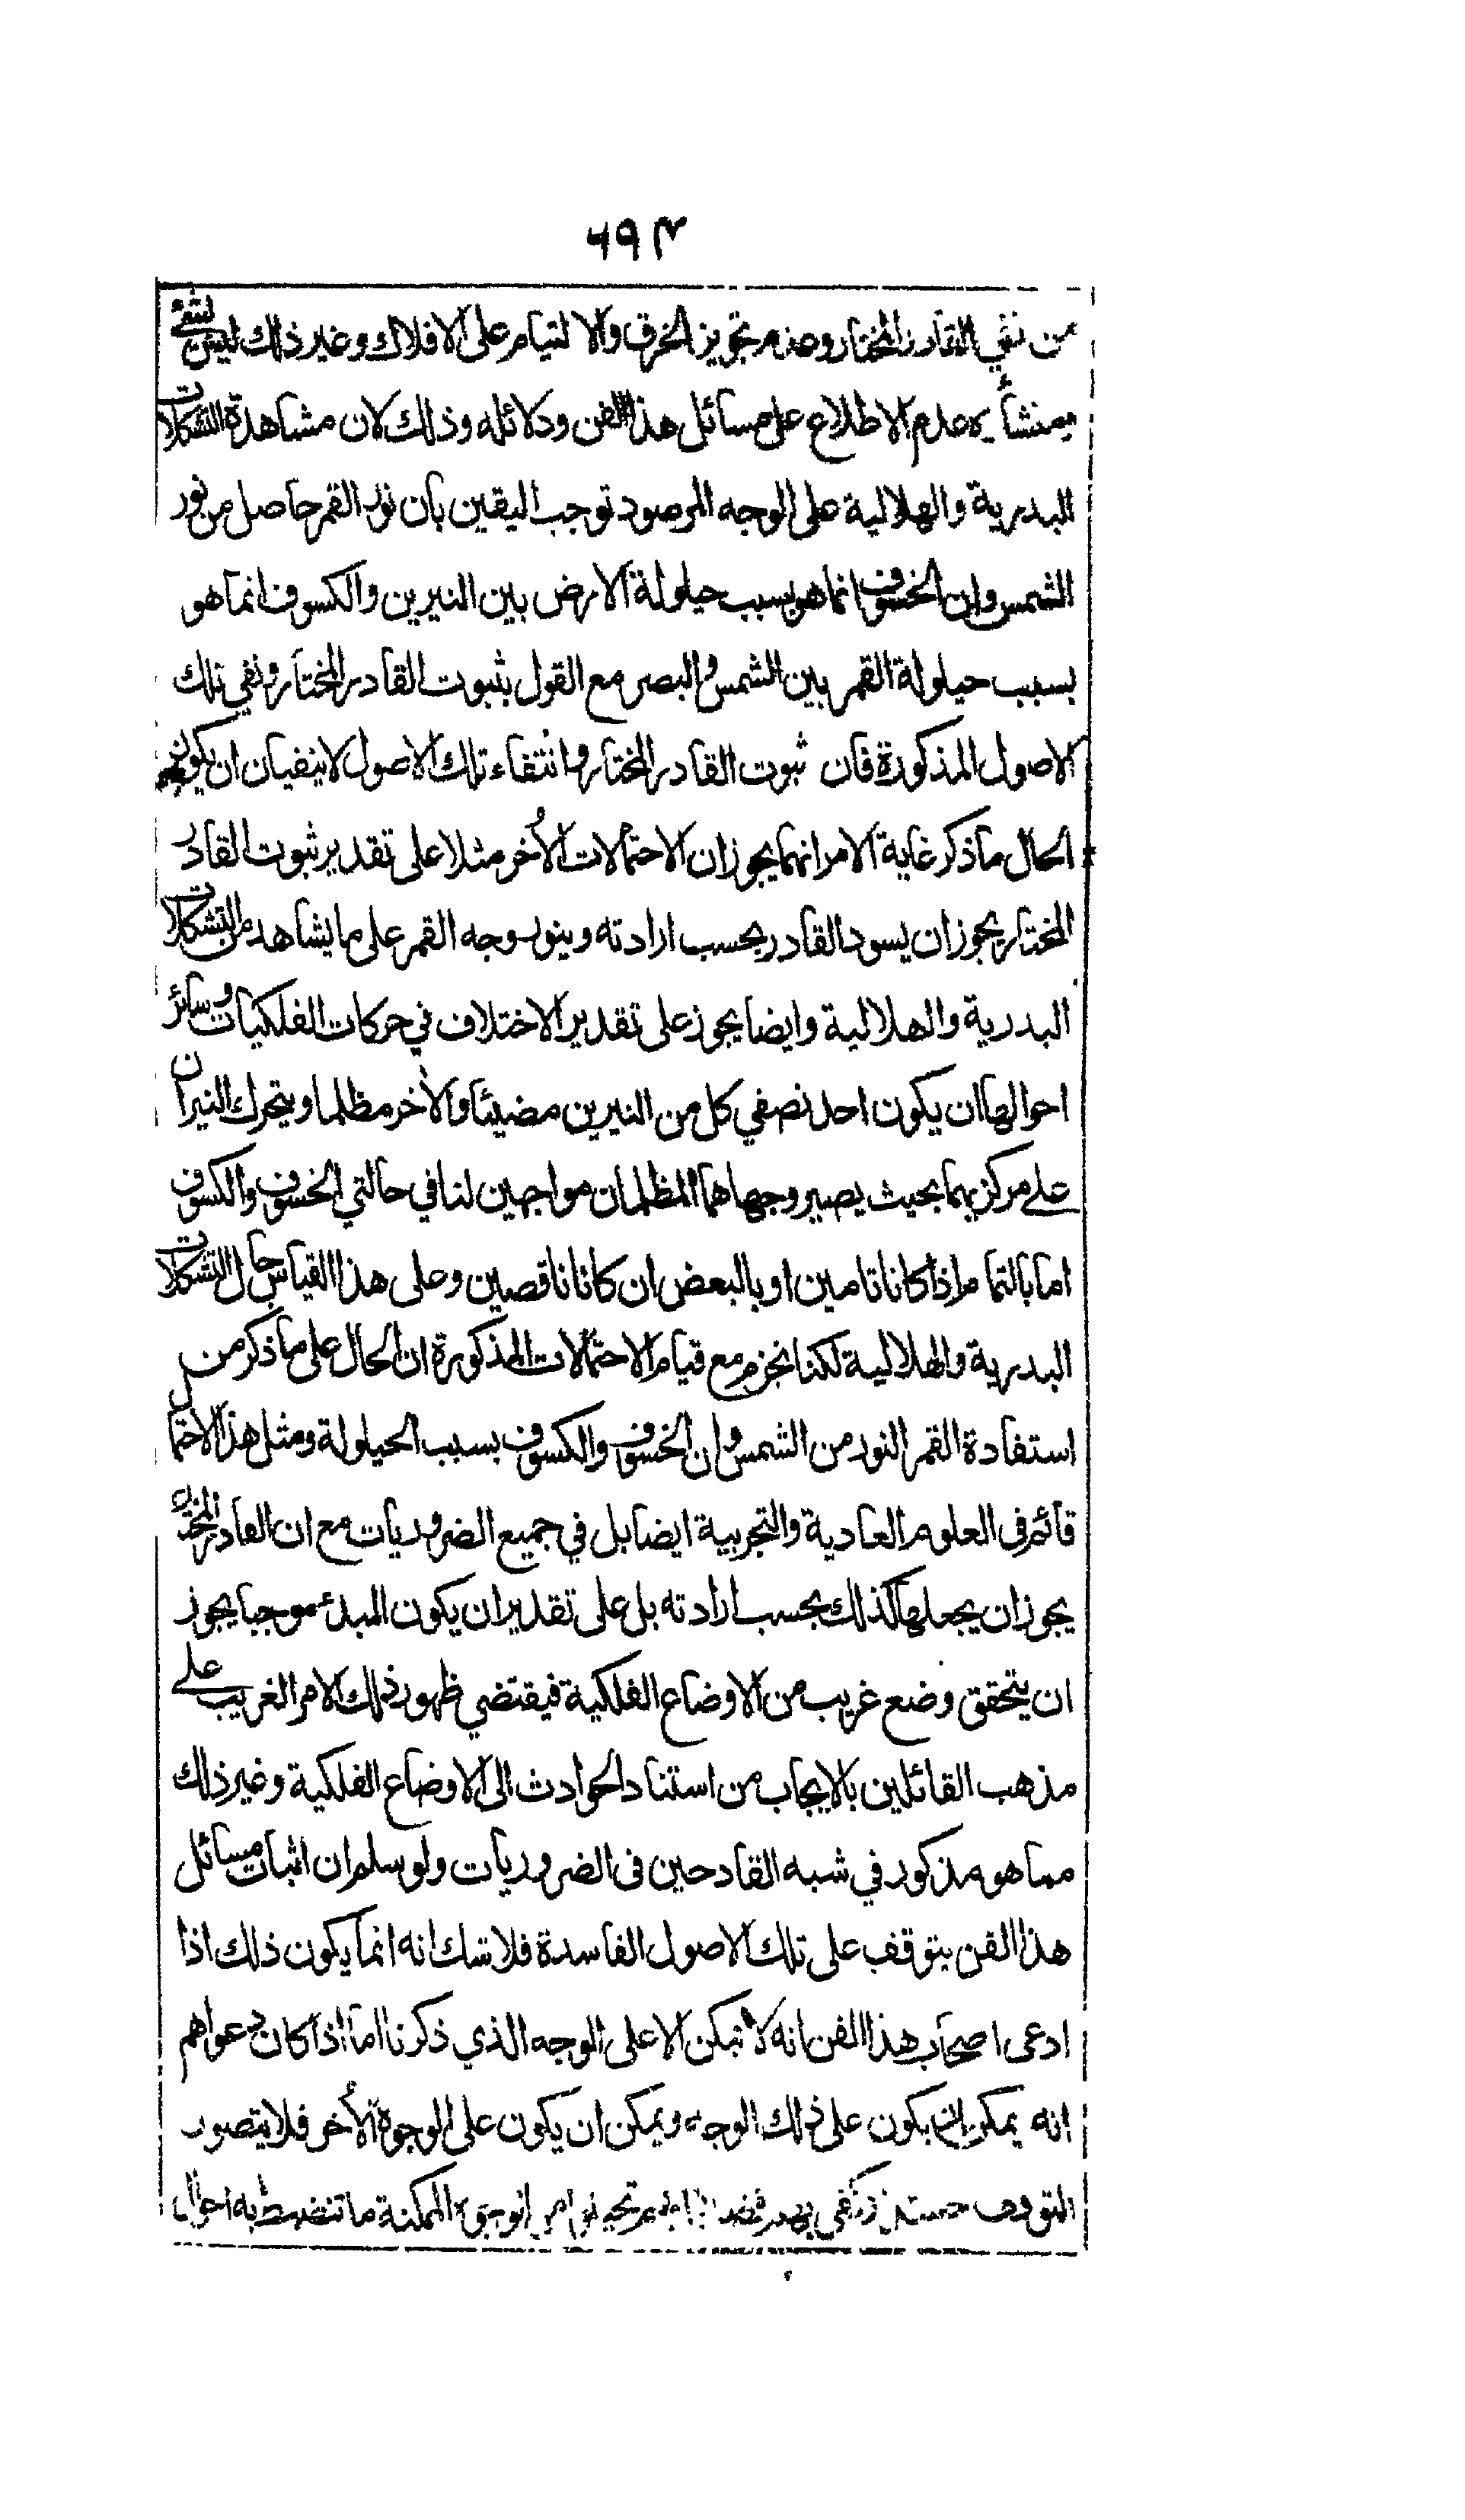 ٦٩٣
من نفي القادر المختار وعدم تجويز الخرق والالتيام على الافلاك وغير ذلك ليس بشيء
منشأه عدم الاطلاع على مسائل هذا الفن ودلائله وذلك لان مشاهدة التشكلات
البدرية والهلالية على الوجه المرصود توجب اليقين بان نور القمر حاصل من نور
الشمس وان الخسوف انما هو بسبب حيلولة الارض بين النيرين والكسوف انما هو
بسبب حيلولة القمر بين الشمس والبصر مع القول بثبوت القادر المختار ونفي تلك
الاصول المذكورة فان ثبوت القادر المختار وانتفاء تلك الاصول لا ينفيان ان يكون
الحال ما ذكر غاية الامر انهما يجوزان الاحتمالات الأخر مثلا على تقدير ثبوت القادر
المختار يجوز ان يسود القادر بحسب ارادته وينور وجه القمر على ما يشاهد من التشكلات
البدرية والهلالية وايضا يجوز على تقدير الاختلاف في حركات الفلكيات وسائر
احوالها ان يكون احد نصفي كل من النيرين مضيئا والأخر مظلما ويتحرك النيران
على مركزيهما بحيث يصير وجهاهما المظلمان مواجهين لنا في حالتي الخسوف والكسوف
اما بالتمام اذا كانا تامين او بالبعض ان كانا ناقصين وعلى هذا القياس حال التشكلات
البدرية والهلالية لكنا نجزم مع قيام الاحتمالات المذكورة ان الحال على ما ذكر من
استفادة القمر النور من الشمس وان الخسوف والكسوف بسبب الحيلولة ومثل هذا الاحتمال
قائم في العلوم العادية والتجربية ايضا بل في جميع الضروريات مع ان القادر المختار
يجوز ان يجعلها كذلك بحسب ارادته بل على تقدير ان يكون المبدء موجبا يجوز
ان يتحقق وضع غريب من الاوضاع الفلكية فيقتضي ظهور ذلك الامر الغريب على
مذهب القائلين بالايجاب من استناد الحوادث الى الاوضاع الفلكية وغير ذلك
مما هو مذكور في شبه القادحين في الضروريات ولو سلم ان اثبات مسائل
هذا الفن يتوقف على تلك الاصول الفاسدة فلا شك انه انما يكون ذلك اذا
ادعى اصحاب هذا الفن انه لا يمكن الا على الوجه الذي ذكرنا اما اذا كان دعواهم
انه يمكن ان يكون على ذلك الوجه ويمكن ان يكون على الوجوه الأخر فلا يتصور
التوقف الممكنة ما تنضبط به احوال